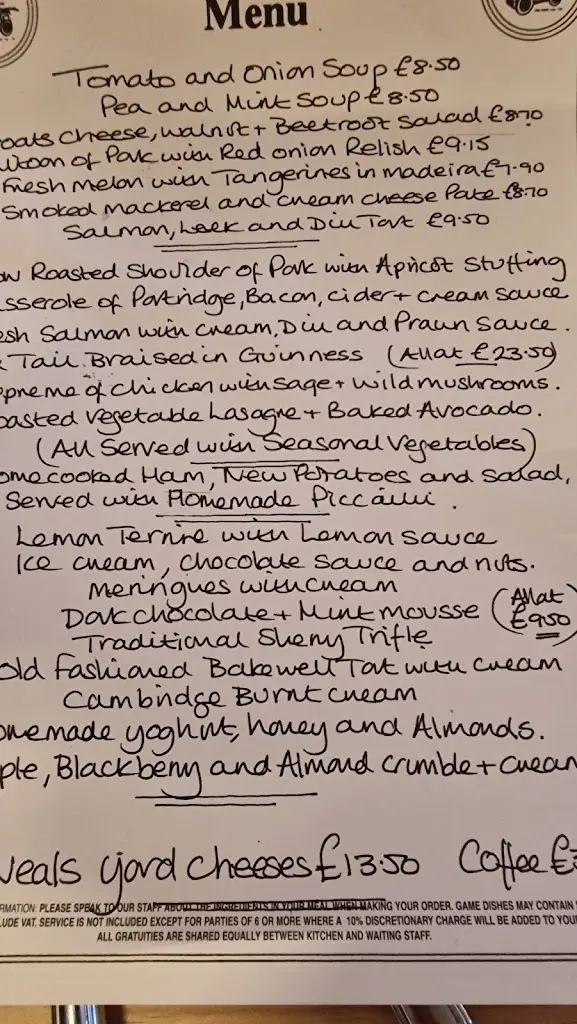 Menu
Tomato and Onion Soup £8.50
Pea and Mint Soup £8.50
oats Cheese, walnut + Beetroot Salad £8.70
of Pork with Red onion Relish £9.15
Fresh melon with Tangerines in madeira £7.90
Smoked mackerel and cream cheese Pate £8.70
Salmon, Leek and Dill Tart £9.50
ow Roasted Shoulder of Pork with Apricot Stuffing
sserole of Partridge, Bacon, cider + cream sauce
esh Salmon with cream, Dill and Prawn Sauce.
Tail Braised in Guinness (All at £23.50)
preme of chicken with sage + wild mushrooms.
oasted vegetable Lasagne + Baked Avocado.
(All Served with Seasonal Vegetables)
omecooked Ham, New Potatoes and Salad,
Served with Homemade Piccalilli.
Lemon Terrine with Lemon sauce
Ice cream, chocolate sauce and nuts.
Meringues with cream
Dark chocolate + Mint mousse (All at £9.50)
Traditional Sherry Trifle
old Fashioned Bakewell Tart with cream
Cambridge Burnt cream
omemade yoghurt, honey and Almonds.
ple, Blackberry and Almond crumble + cream
neals yard cheeses £13.50 Coffee £3
RMATION: PLEASE SPEAK TO OUR STAFF ABOUT THE INGREDIENTS IN YOUR MEAL WHEN MAKING YOUR ORDER. GAME DISHES MAY CONTAIN
LUDE VAT. SERVICE IS NOT INCLUDED EXCEPT FOR PARTIES OF 6 OR MORE WHERE A 10% DISCRETIONARY CHARGE WILL BE ADDED TO YOU
ALL GRATUITIES ARE SHARED EQUALLY BETWEEN KITCHEN AND WAITING STAFF.